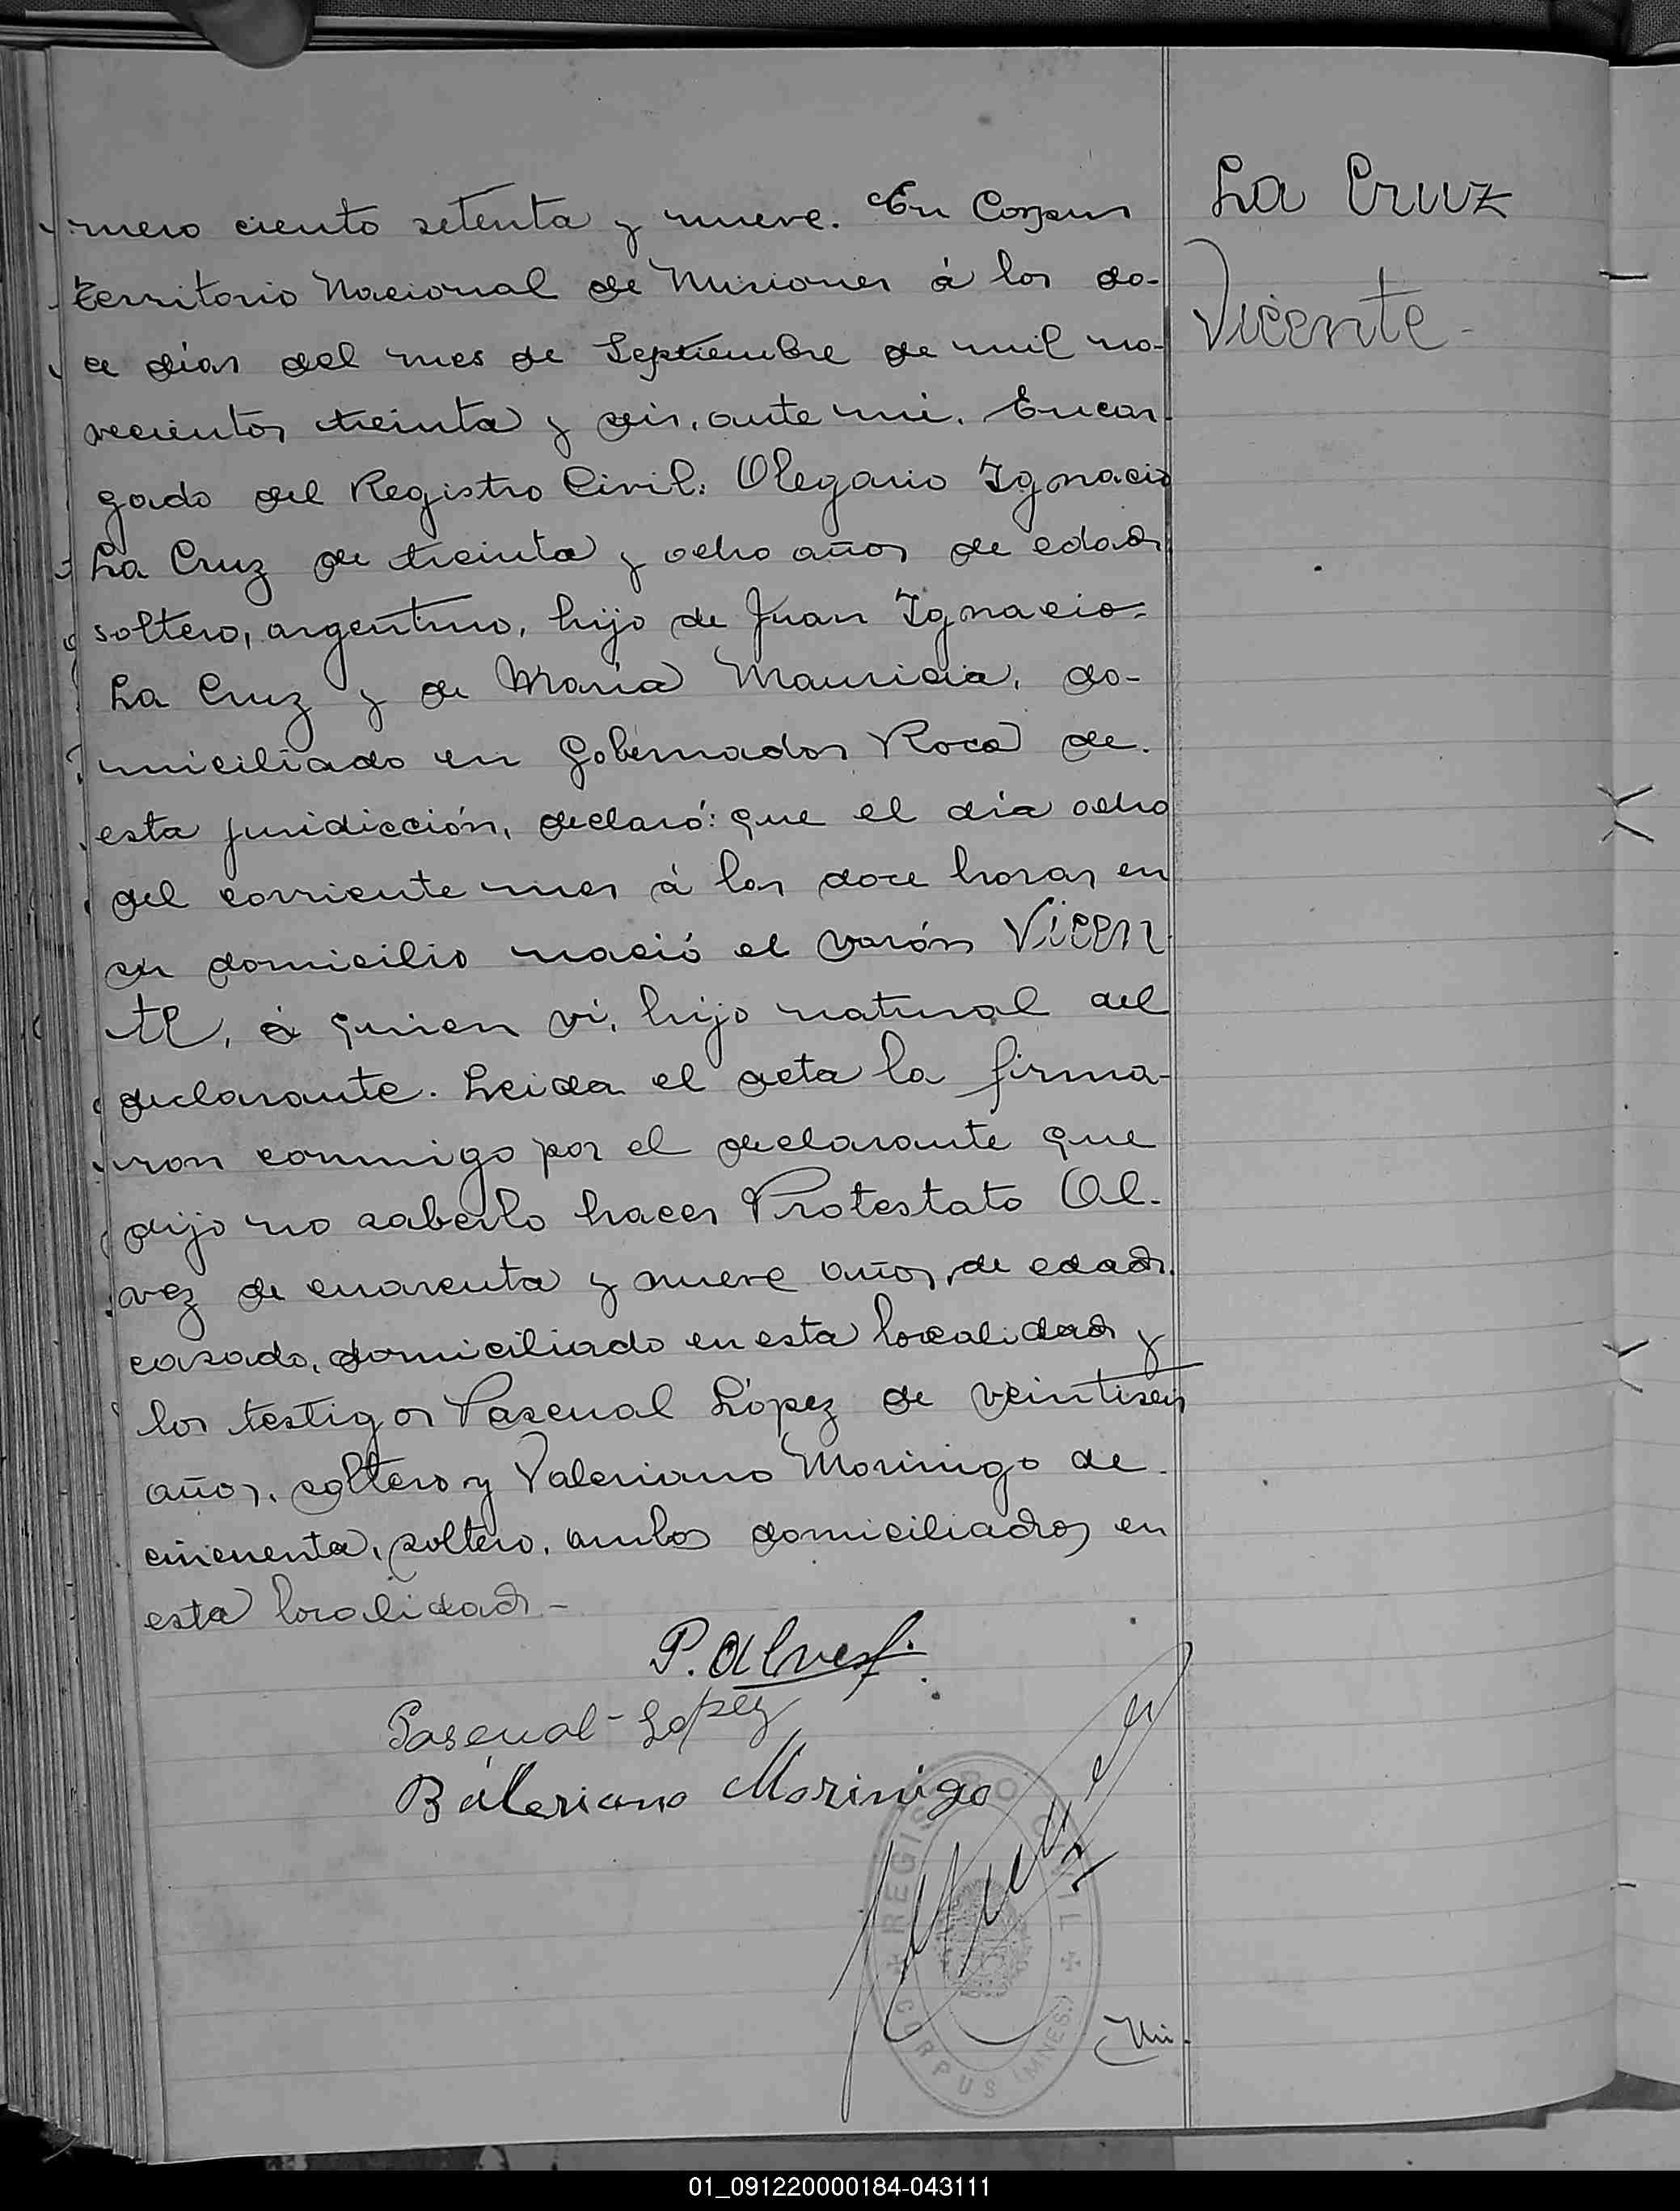 mero ciento setenta y nueve. En Corpus
territorio Nacional de Misiones á los do-
ce días del mes de Septiembre de mil no-
vecientos treinta y seis, ante mi. Encar-
gado del Registro Civil: Olegario Ignacio
La Cruz de treinta y ocho años de edad,
soltero, argentino, hijo de Juan Ignacio
La Cruz y de María Mauricia, do-
miciliado en Gobernador Roca de
esta juridicción, declaró: que el día ocho
del corriente mes á las doce horas en
su domicilio nació el varón Vicen
te, á quien vi, hijo natural del
declarante. Leida el acta la firma-
ron conmigo por el declarante que
dijo no saberlo hacer Protestato Al-
vez de cuarenta y nueve años, de edad,
casado, domiciliado en esta localidad y
los testigos Pascual López de veintiseis
años, soltero y Valeriano Morinigo de
cincuenta, soltero, ambos domiciliados en
esta localidad-
P. Alvez
Pascual-Lopez
Báleriano Morinigo
REGISTRO CIVIL
CORPUS (MNES.)
La Cruz
Vicente-
01_091220000184-043111